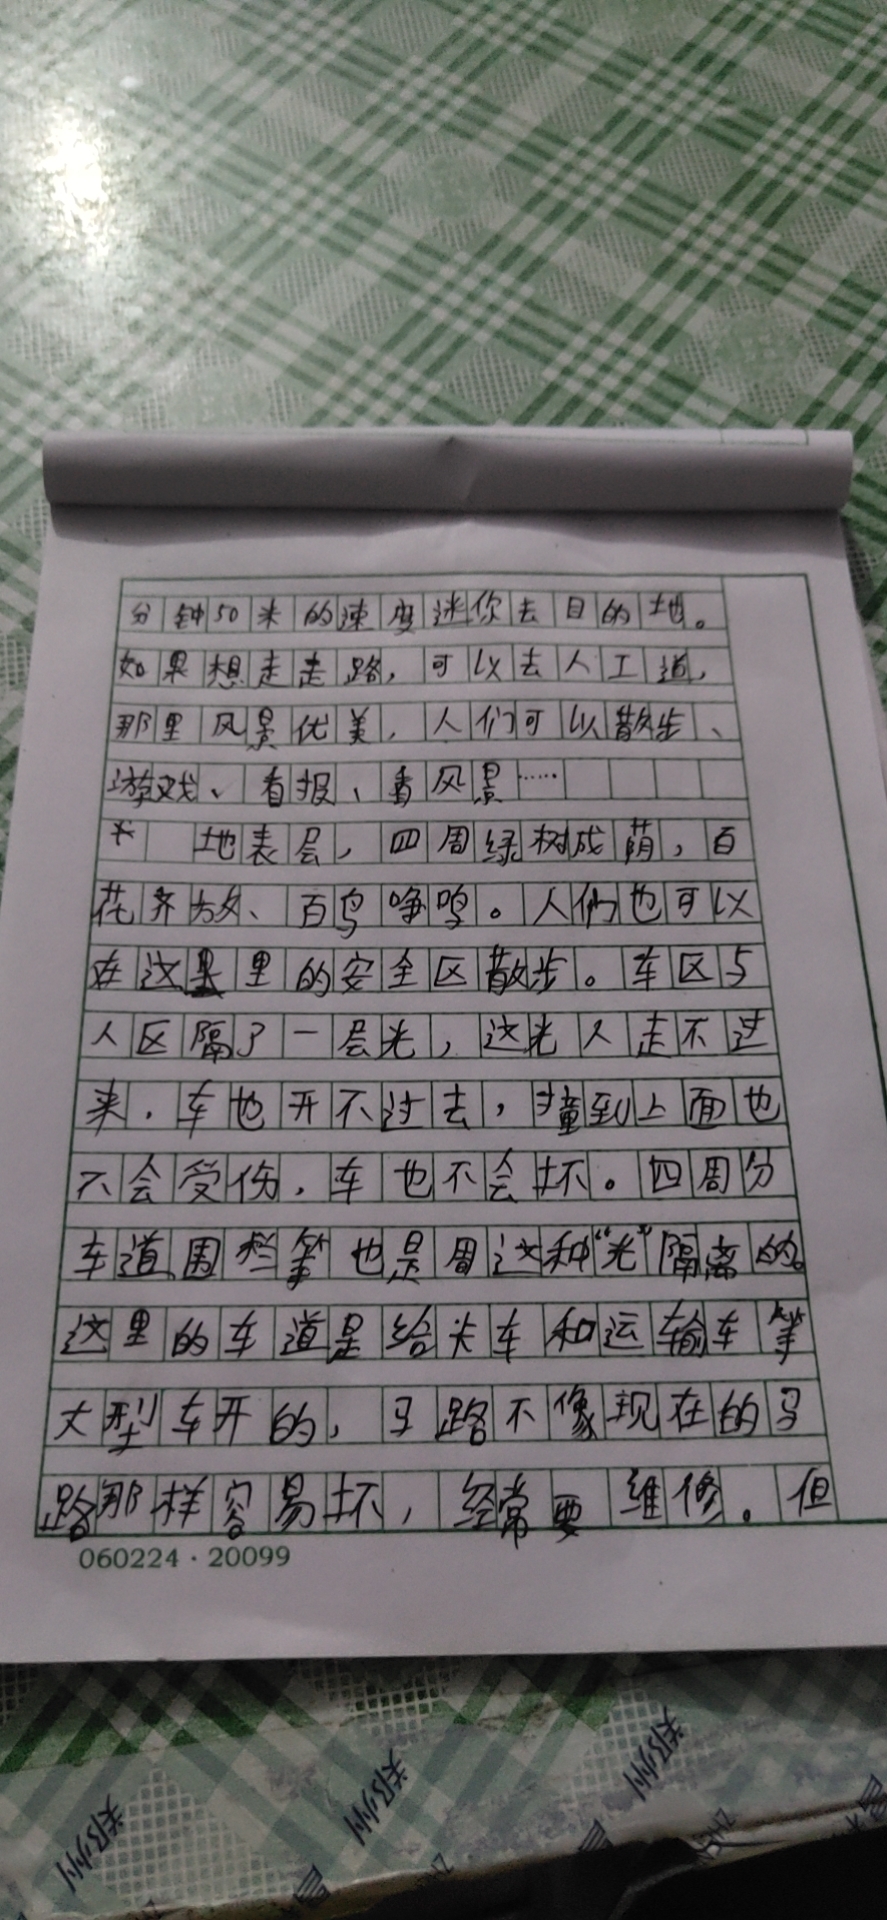 分钟50米的速度送你去目的地。
如果想走走路，可以去人工道，
那里风景优美，人们可以散步、
游戏、看报、看风景……
地表层，四周绿树成荫，百
花齐放、百鸟争鸣。人们也可以
在这里的安全区散步。车区与
人区隔了一层光，这光人走不过
来，车也开不过去，撞到上面也
不会受伤，车也不会坏。四周分
车道围栏等也是用这种“光”隔离的。
这里的车道是给卡车和运输车等
大型车开的，马路不像现在的马
路那样容易坏，经常要维修。但
060224·20099
郑州
郑州
郑州